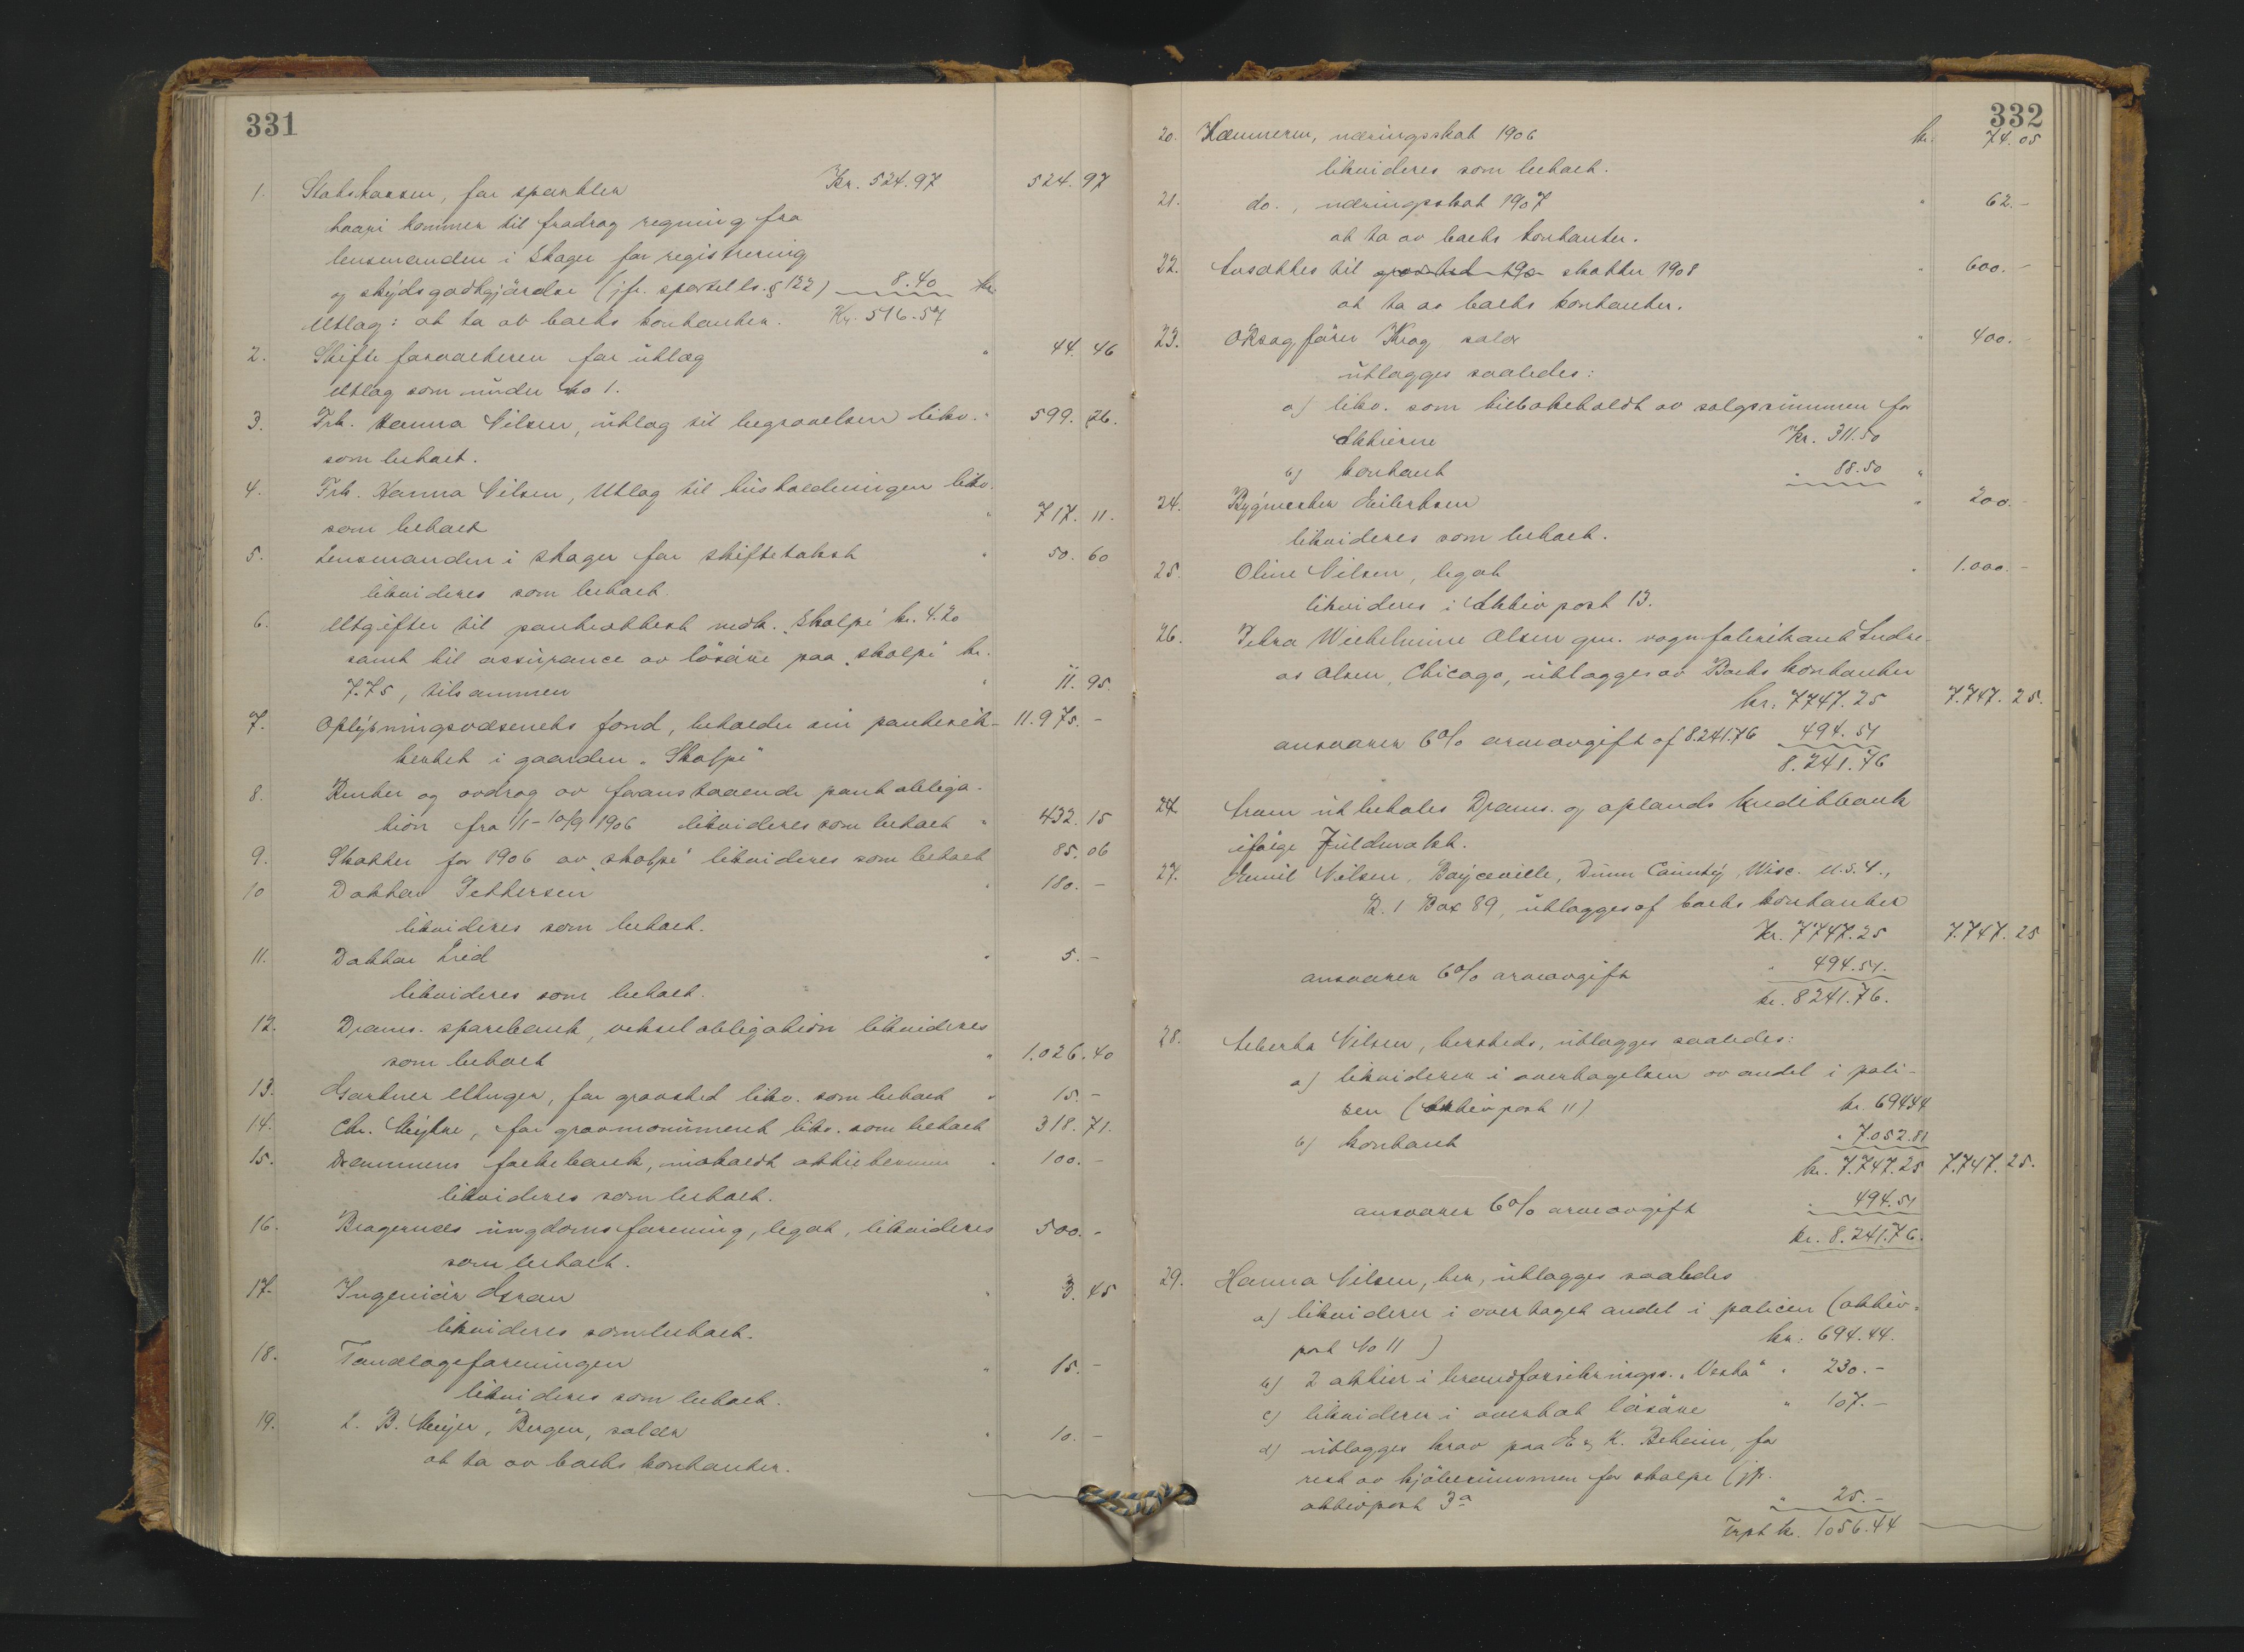 331
1. Statskassen, for sportler Kr. 524.97 524. 97
haari kommer til fradrag regning fra
lensmanden i Skoger for registrering
og skydsgodtgjørelse (jfr. sportell. § 122) 8.40 kr.
Utlæg: at ta av boets kontanter. Kr. 516.57
2. Skifteforvalteren for utlæg " 44. 46
utlæg som under No 1.
3. Frk. Hanna Nilsen, utlæg til begravelsen likv. " 599. 26.
som betalt.
4. Frk. Hanna Nilsen, Utlæg til husholdningen likv.
som betalt " 717. 11.
5. Lensmanden i Skoger for skiftetakst " 50. 60
likvideres som betalt.
6. Utgifter til panteattest vedk. "Skalpe" kr. 4.20
samt til assurance av løsøre paa "Skalpe" kr.
7.75, tilsammen " 11. 95.
7. Oplysningsvæsenets fond, beholder sin panteret- 11.975. -
tighet i gaarden "Skalpe"
8. Renter og avdrag av foranstaaende pantobliga-
tion fra 1/1 - 10/9 1906 likvideres som betalt " 432. 15
9. Skatter for 1906 av "Skalpe" likvideres som betalt 85. 06
10 Doktor Pettersen " 180. -
likvideres som betalt.
11. Doktor Lied " 5. -
likvideres som betalt.
12. Drams. sparebank, vekselobligation likvideres
som betalt " 1.026. 40
13. Gartner for gravsted likv. som betalt " 15. -
14. Chr. for gravmonument likv. som betalt 318. 71.
15. Drammens " 100. -
likvideres som betalt.
16. Bragernæs ungdomsforening, legat, likvideres 500. -
som betalt.
17. Ingeniør Gran " 3. 45
likvideres som betalt.
18. Tandlægeforeningen " 15. -
likvideres som betalt.
19. L. B. Meyer, Bergen, saldo " 10. -
at ta av boets kontanter.
332
20. Kæmneren, næringsskat 1906 kr. 74. 05
likvideres som betalt.
21. do., næringsskat 1907 " 62. -
at ta av boets kontanter.
22. Avsættes til skatter 1908 " 600. -
at ta av boets kontanter.
23. O.r.sagfører Krog salær " 400. -
utlægges saaledes:
a) likv. som tilbakeholdt av salgssummen for
Aktierne Kr. 311.50
b) kontant " 88.50 "
24. Bygmester Eilertsen " 200. -
likvideres som betalt.
25. Oline Nilsen, legat " 1.000. -
likvideres i Aktiv post 13.
26. Petra Wilhelmine Olsen gm. vognfabrikant Andre-
as Olsen, Chicago, utlægges av Boets kontanter
kr. 7747.25 7.747. 25.
ansvarer 6% arveavgift af 8.241.76 494.51
8.241.76
27. som utbetales Drams. og oplands kreditbank
ifølge Fuldmakt.
27. Emil Nilsen, Boyceville, Dunn County, Wisc. U.S.A.,
R. 1 Box 89, utlægges af boets kontanter
Kr. 7747.25 7.747. 25
ansvarer 6% arveavgift " 494.51.
kr. 8241.76.
28. Alberta Nilsen, hersteds, utlægges saaledes:
a) likviderer i overtagelsen av andel i poli-
sen (Aktivpost 11) kr. 694.44
b) kontant " 7.052.81
kr. 7.747.25 7.747. 25.
ansvarer 6% arveavgift " 494.51
kr. 8.241.76.
29. Hanna Nilsen, her, utlægges saaledes
a) likviderer i overtaget andel i policen (aktiv-
post No 11) kr. 694.44.
b) 2 aktier i brandforsikringss. "Vesta" " 230. -
c) likviderer i overtat løsøre " 107. -
d) utlægges krav paa E & K. for
rest av kjøbesummen for skalpe (jfr.
aktivpost 3a " 25. -
Trpt kr. 1056.44